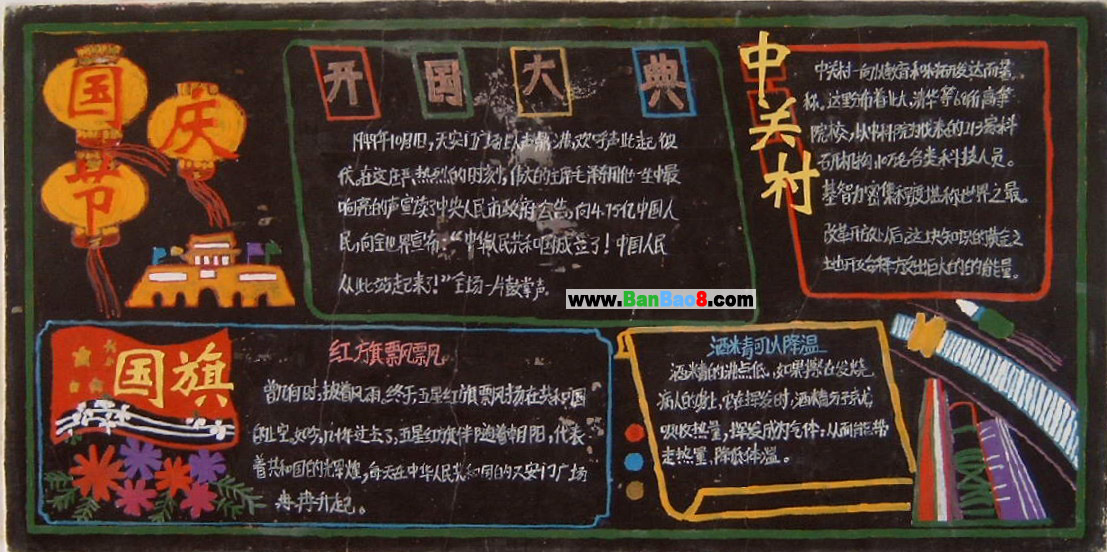 国庆节
开国大典
1949年10月1日,天安门广场上人声鼎沸,欢呼声此起彼
伏。在这庄严热烈的时刻,伟大的主席毛泽东用他一生中最
响亮的声宣读了中央人民市政府公告,向4.75亿中国人
民,向全世界宣布:“中华人民共和国成立了!中国人民
从此站起来了!”全场一片鼓掌声。
中关村
中关村一向以教育和科研发达而著
称。这里分布着北大、清华等6所高等
院校,以中科院为代表的213家科
研机构,10万名各类科技人员。
基智力密集程度堪称世界之最。
改革开放以后,这块知识的黄金之
土地开始释放出巨大的能量。
www.BanBao8.com
国旗
红旗飘飘
曾几何时,披着风雨,终于五星红旗飘扬在共和国
的上空。如今,几十年过去了,五星红旗伴随着朝阳,代表
着共和国的光辉煌,每天在中华人民共和国的天安门广场
冉冉升起。
酒精可以降温
酒精的沸点低,如果擦在发烧
病人的身上,它在挥发时,酒精分子就
吸收热量,挥发成为气体;从而能带
走热量,降低体温。